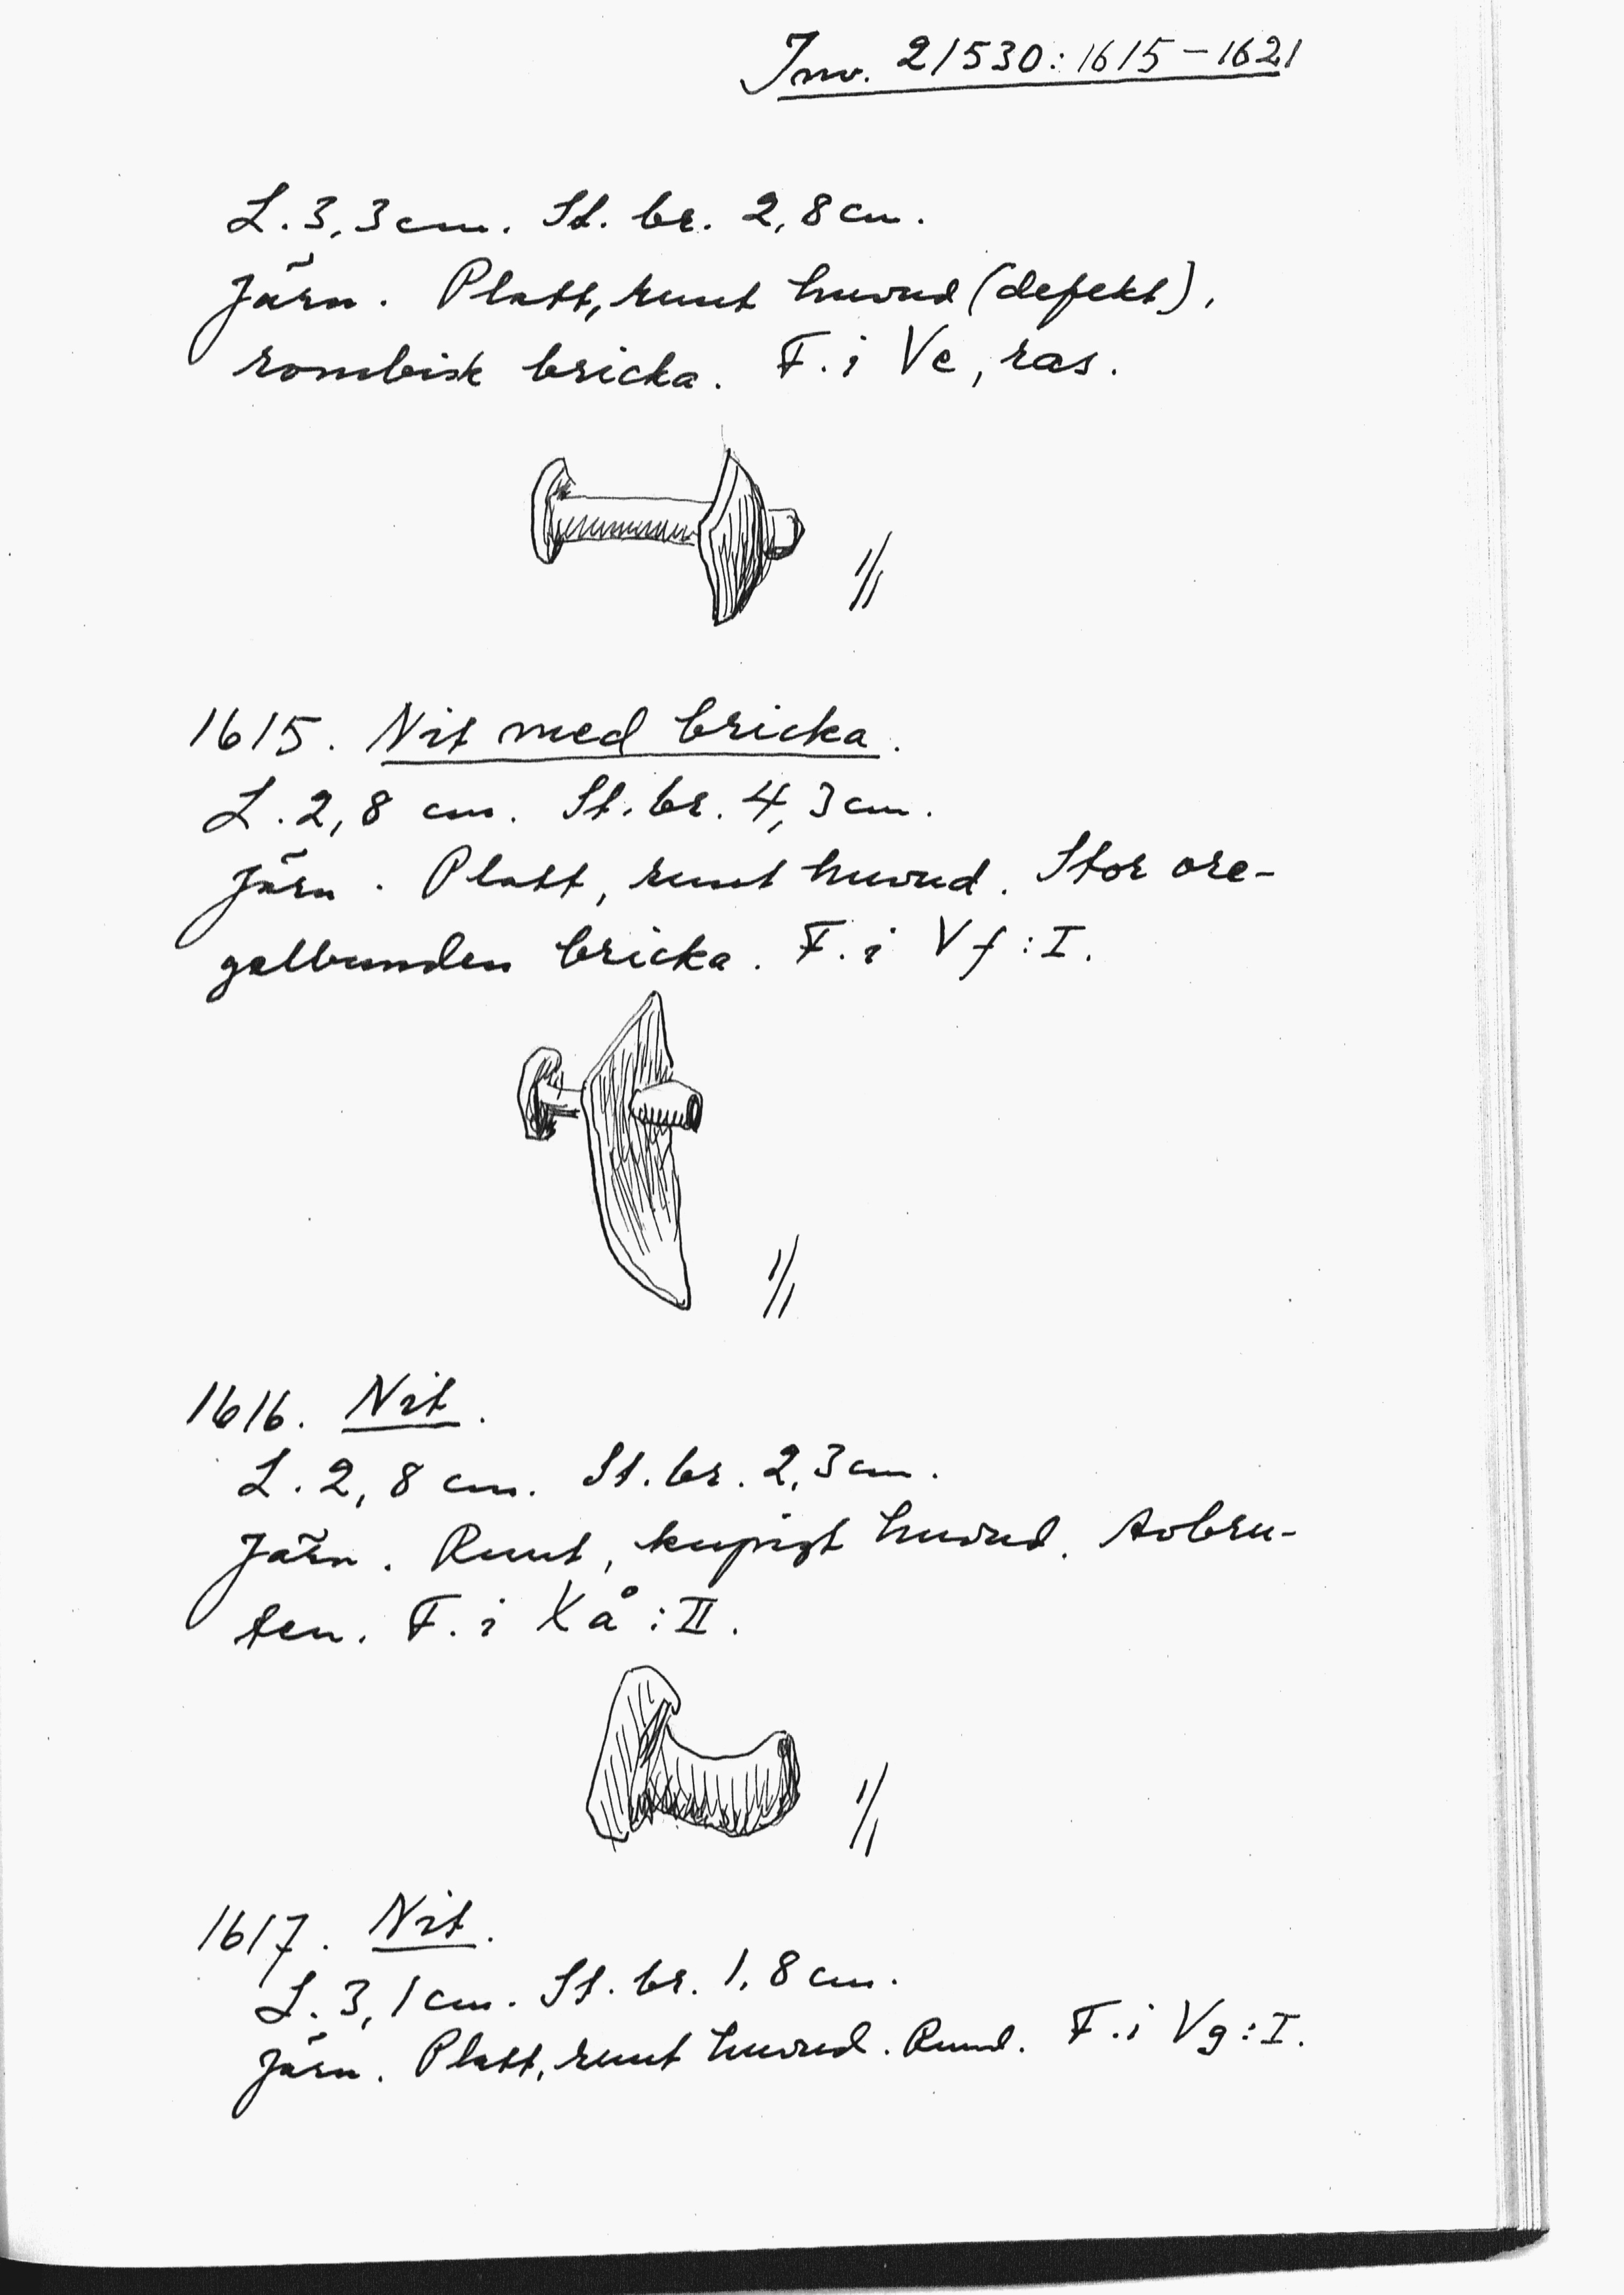 Inv. 21530:1615-1621
L. 3,3 cm. St. br. 2,8 cm.
Järn. Platt, runt huvud (defekt),
rombisk bricka. F. i Ve, ras.
1/1
1615. Nit med bricka.
L. 2,8 cm. St. br. 4,3 cm.
Järn. Platt, runt huvud. Stor ore-
gelbunden bricka. F. i Vf:I.
1/1
1616. Nit.
L. 2,8 cm. St. br. 2,3 cm.
Järn. Runt, kupigt huvud. Avbru-
ten. F. i Xå:II.
1/1
1617. Nit.
L. 3,1 cm. St. br. 1,8 cm.
Järn. Platt, runt huvud. Rund. F. i Vg:I.